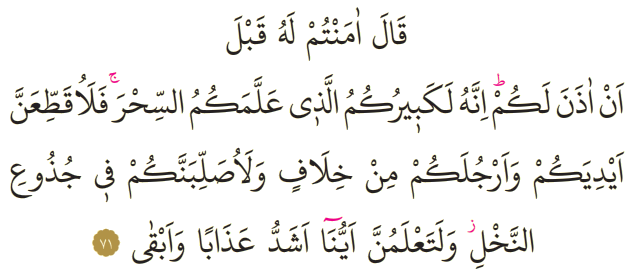 قَالَ اٰمَنْتُمْ لَهُ قَبْلَ
اَنْ اٰذَنَ لَكُمْۜ اِنَّهُ لَكَبٖيرُكُمُ الَّذٖى عَلَّمَكُمُ السِّحْرَۚ فَلَاُقَطِّعَنَّ
اَيْدِيَكُمْ وَاَرْجُلَكُمْ مِنْ خِلَافٍ وَلَاُصَلِّبَنَّكُمْ فٖى جُذُوعِ
النَّخْلِؗ وَلَتَعْلَمُنَّ اَيُّنَٓا اَشَدُّ عَذَابًا وَاَبْقٰى ٧١